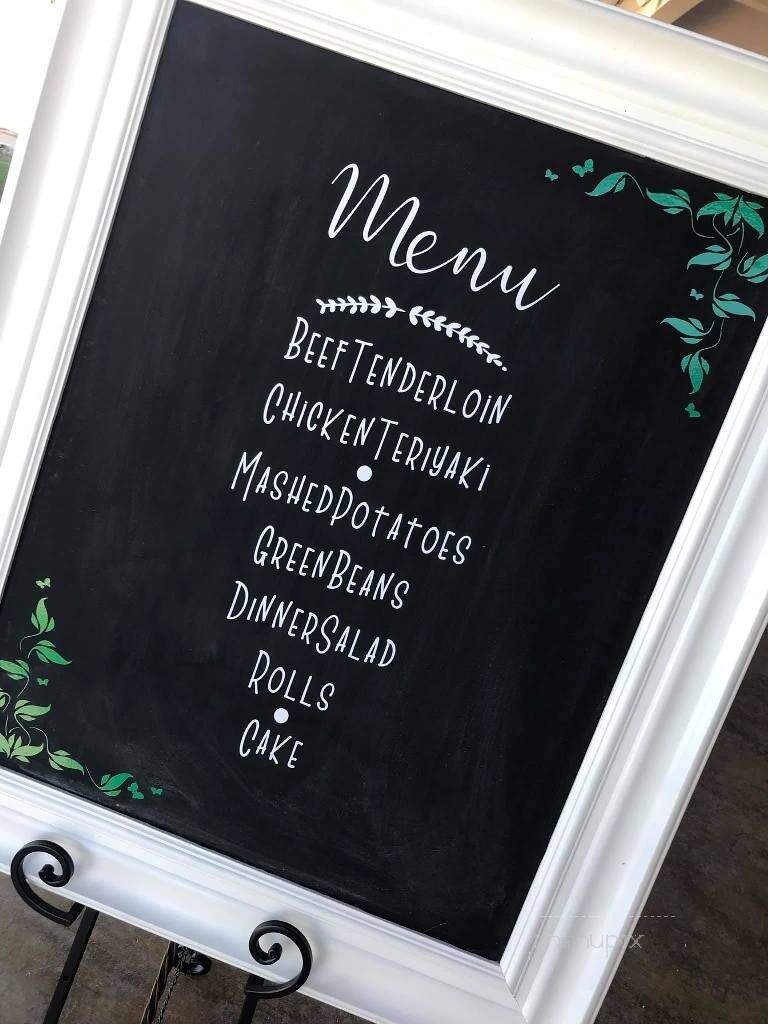 Menu
BEEFTENDERLOIN
CHICKENTERIYAKI
MASHEDPOTATOES
GREENBEANS
DINNERSALAD
ROLLS
CAKE